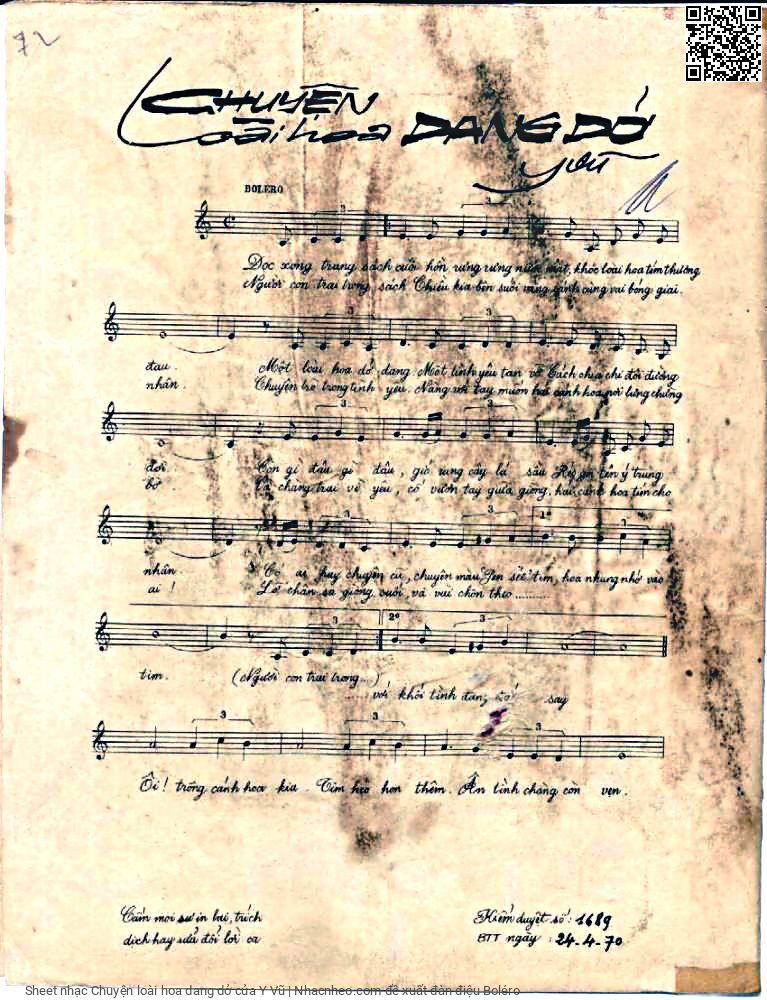 72
CHUYỆN
Loài hoa DANG DỞ
Y Vũ
BOLERO
Đọc xong trang sách cuối hồn rưng rưng nước mắt, khóc loài hoa tím thương
Người con trai trong sách Chiều kia bên suối vắng cùng vai bóng giai
đau. Một loài hoa dở dang. Một tình yêu tan vỡ Cách chia chi đôi đường
nhân. Chuyện trò trong tình yêu. Nàng với tay muốn hái cánh hoa nơi lưng chừng
đời. Còn gì đâu gì đâu, gió rung cây lá sầu tên ý trung
bờ chàng trai vì yêu, cố vươn tay giữa giòng, hái cánh hoa tím cho
nhân. Có ai hay chuyện cũ, chuyện màu Pen sée tím, hoa nhung nhớ vào
ai ! Lỡ chân sa giòng suối, và vui chôn theo..........
1º
tim. (Người con trai trong...)
2º
...... với khối tình đang say
Ôi ! trông cánh hoa kia - Tim héo hon thêm. Ân tình chẳng còn vẹn.
Cấm mọi sự in lại, trích
dịch hay sửa đổi lời ca
Kiểm duyệt số : 1689
BTT ngày : 24-4-70
Sheet nhạc Chuyện loài hoa dang dở của Y Vũ | Nhacnheo.com đề xuất đàn điệu Boléro